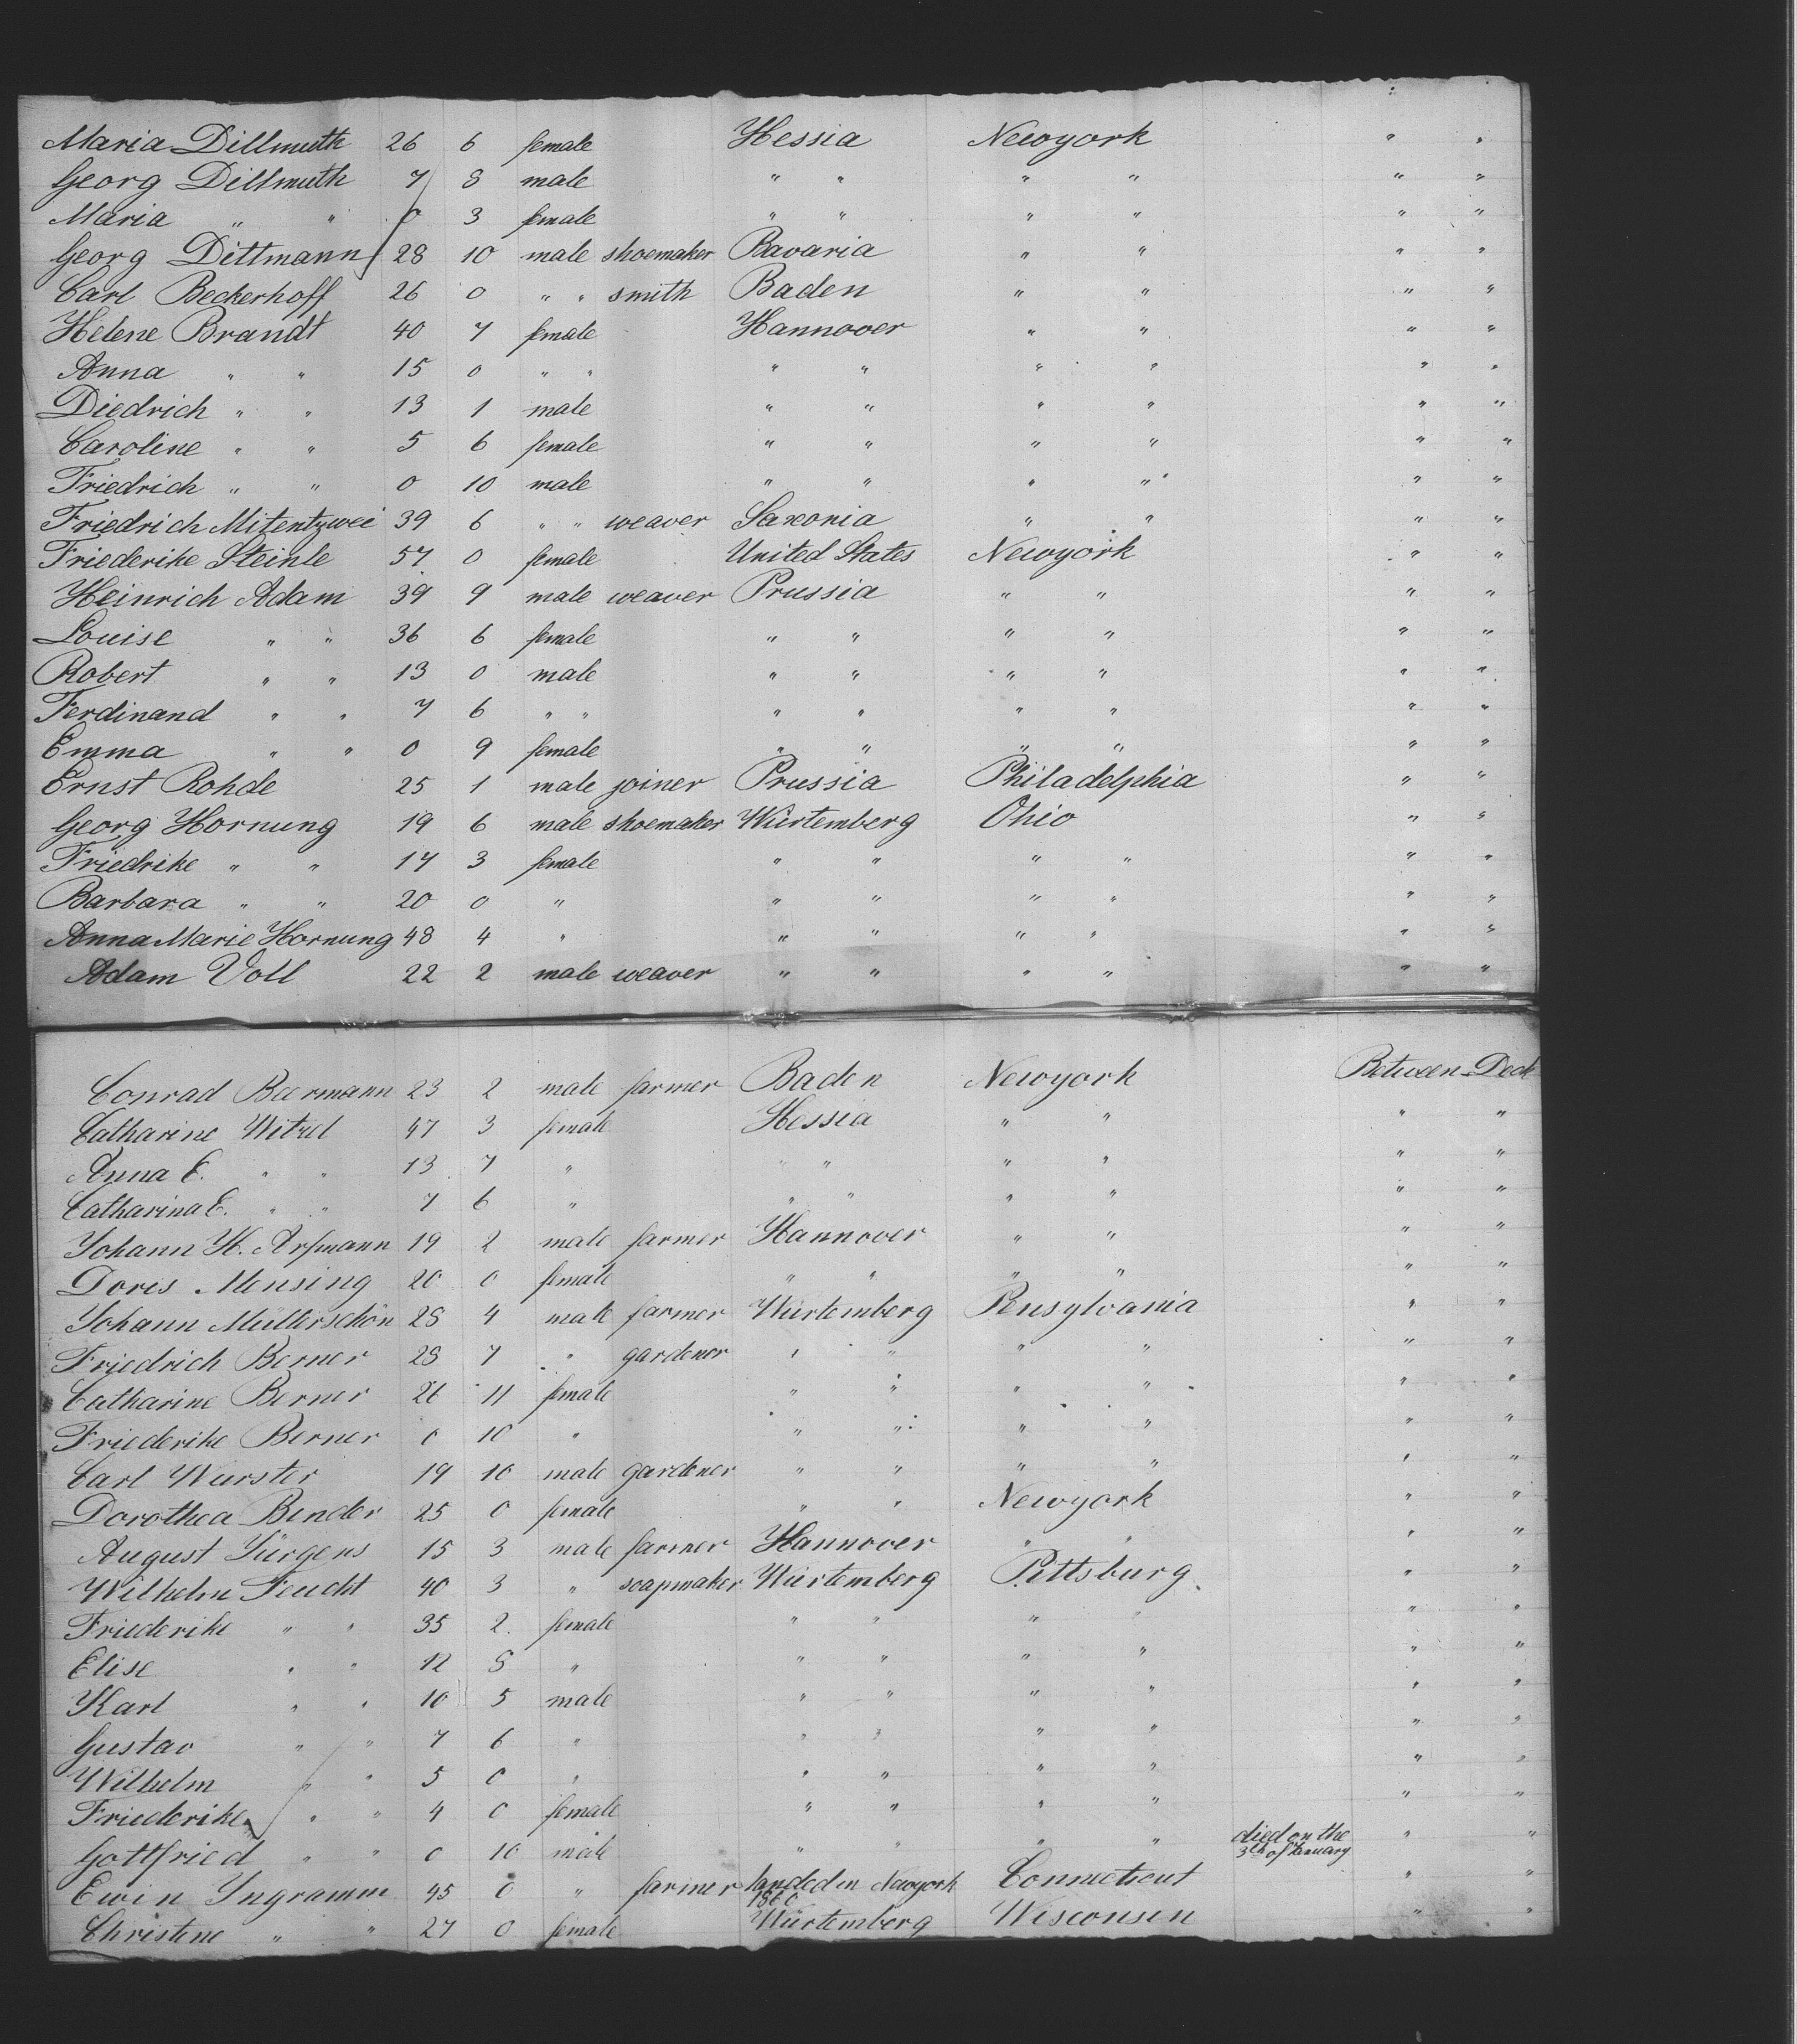 Maria Dillmuth 26 6 female Hessia Newyork " "
Georg Dillmuth 7 8 male " " " " " "
Maria " " 0 3 female " " " " " "
Georg Dittmann 28 10 male shoemaker Bavaria " " " "
Carl Beckerhoff 26 0 " " smith Baden " " " "
Helene Brandt 40 7 female Hannover " " " "
Anna " " 15 0 " " " " " " " "
Diedrich " " 13 1 male " " " " " "
Caroline " " 5 6 female " " " " " "
Friedrich " " 0 10 male " " " " " "
Friedrich Mitentzwei 39 6 " " weaver Saxonia " " " "
Friederike Steinle 57 0 female United States Newyork " "
Heinrich Adam 39 9 male weaver Prussia " " " "
Louise " " 36 6 female " " " " " "
Robert " " 13 0 male " " " " " "
Ferdinand " " 7 6 " " " " " " " "
Emma " " 0 9 female " " " " " "
Ernst Rohde 25 1 male joiner Prussia Philadelphia " "
Georg Hornung 19 6 male shoemaker Würtemberg Ohio " "
Friedrike " " 17 3 female " " " " " "
Barbara " " 20 0 " " " " " " "
Anna Marie Hornung 48 4 " " " " " " "
Adam Voll 22 2 male weaver " " " " " "
Conrad Beermann 23 2 male farmer Baden Newyork Between Deck
Catharine Witzel 47 3 female Hessia " " " "
Anna E. " " 13 7 " " " " " " "
Catharina E. " " 7 6 " " " " " " "
Johann H. Arfmann 19 2 male farmer Hannover " " " "
Doris Mensing 20 0 female " " " " " "
Johann Müllerschön 28 4 male farmer Würtemberg Pensylvania " "
Friedrich Berner 28 7 " gardener " " " " " "
Catharine Berner 26 11 female " " " " " "
Friederike Berner 0 10 " " " " " " "
Carl Wurster 19 10 male gardener " " " " " "
Dorothea Binder 25 0 female " " Newyork " "
August Jürgens 15 3 male farmer Hannover " " " "
Wilhelm Feucht 40 3 " soapmaker Würtemberg Pittsburg " "
Friederike " " 35 2 female " " " " " "
Elise " " 12 8 " " " " " " "
Karl " " 10 5 male " " " " " "
Gustav " " 7 6 " " " " " " "
Wilhelm " " 5 0 " " " " " " "
Friederike " " 4 0 female " " " " " "
Gottfried " " 0 10 male " " " " died on the 5th of January " "
Ewin Yngramm 45 0 " farmer landed in Newyork 1860 Connecticut " "
Christine " " 27 0 female Würtemberg Wisconsin " "